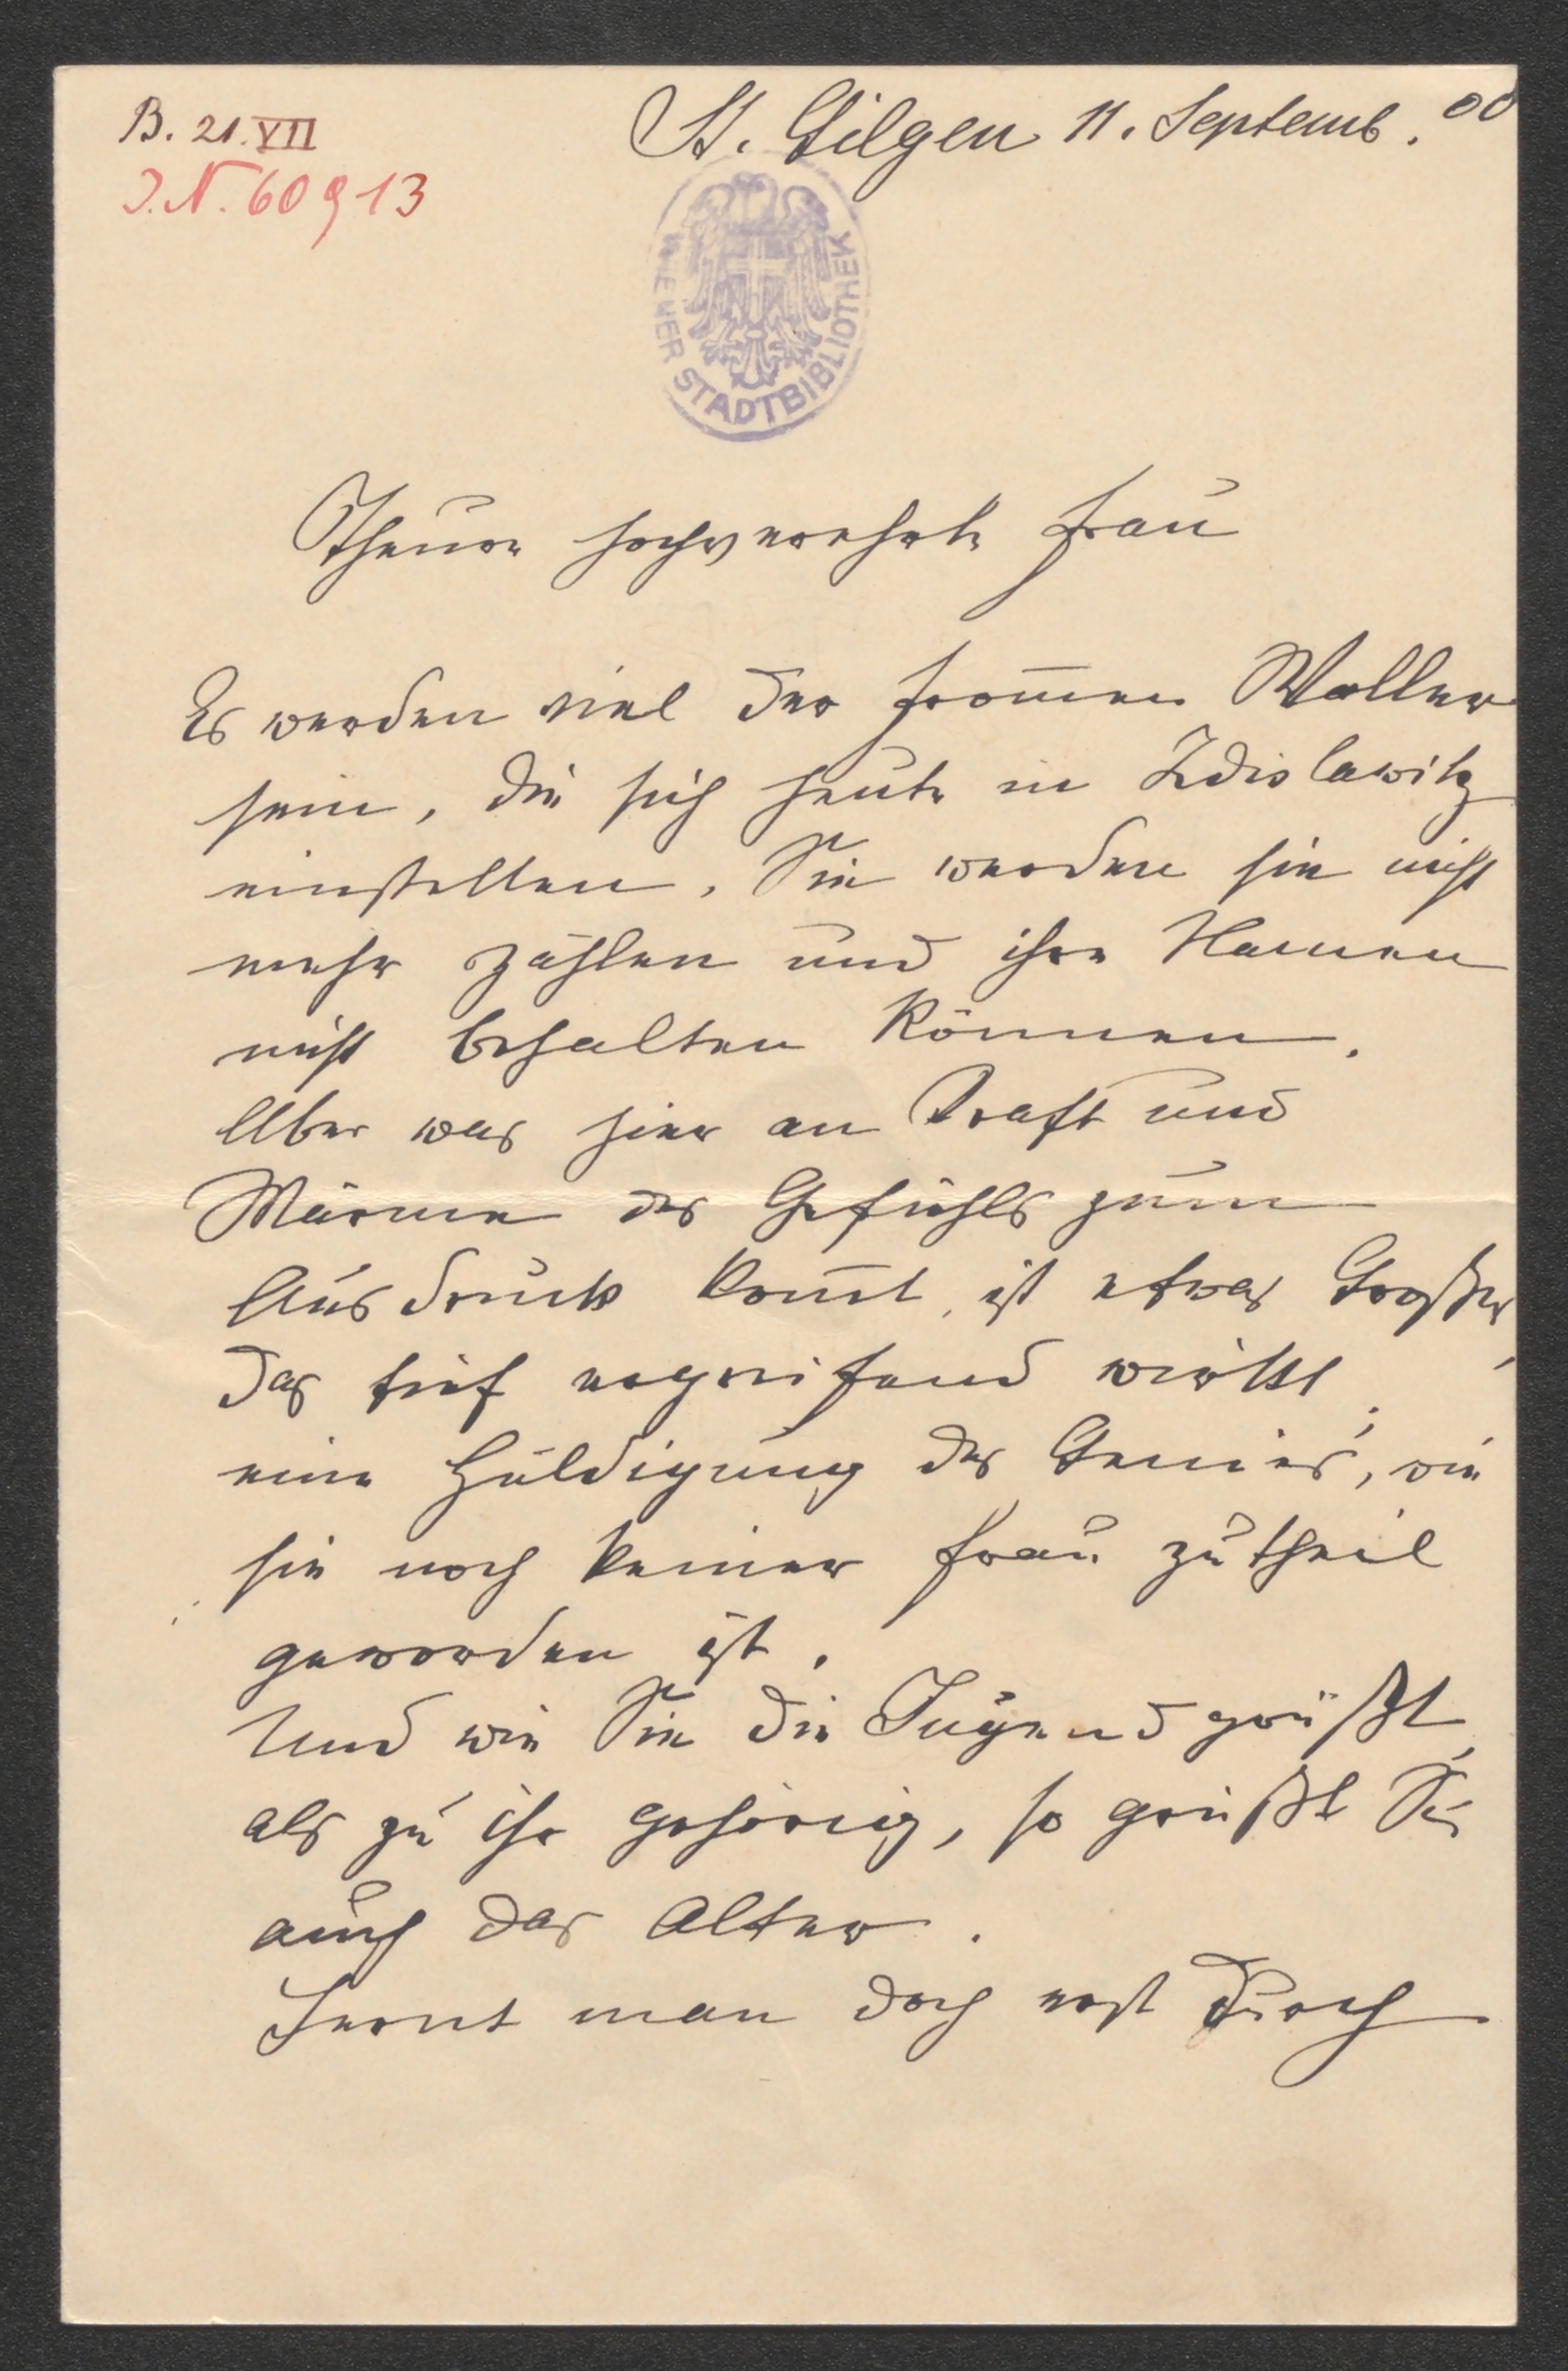 B. 21.VII
J.N. 60913
St. Gilgen 11. Septemb. 00
WIENER STADTBIBLIOTHEK
Theure hochverehrte Frau
Es werden viel der from̄en Waller
sein, die sich heute in Zdislawitz
einstellen. Sie werden sie nicht
mehr zählen und ihre Namen
nicht behalten können.
Aber was hier an Kraft und
Wärme des Gefühls zum
Ausdruck kom̄t, ist etwas Großes,
das tief ergreifend wirkt,
eine Huldigung des Genies, wie
sie noch keiner Frau zutheil
geworden ist.
Und wie Sie die Jugend grüßt,
als zu ihr gehörig, so grüßt Sie
auch das Alter.
Lernt man doch erst durch